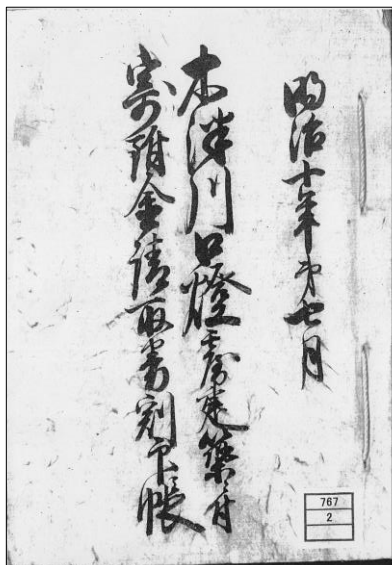 明治十年第七月
木津川口燈臺建築ニ付
寄附金請取書割印帳
767
2